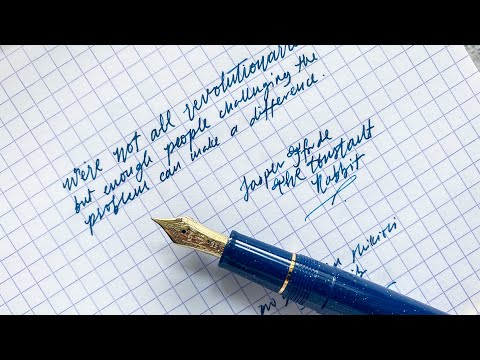 We're not all revolutionari
but enough people challenging the
problem can make a difference.
Jasper Fforde
The Constant
Rabbit
no